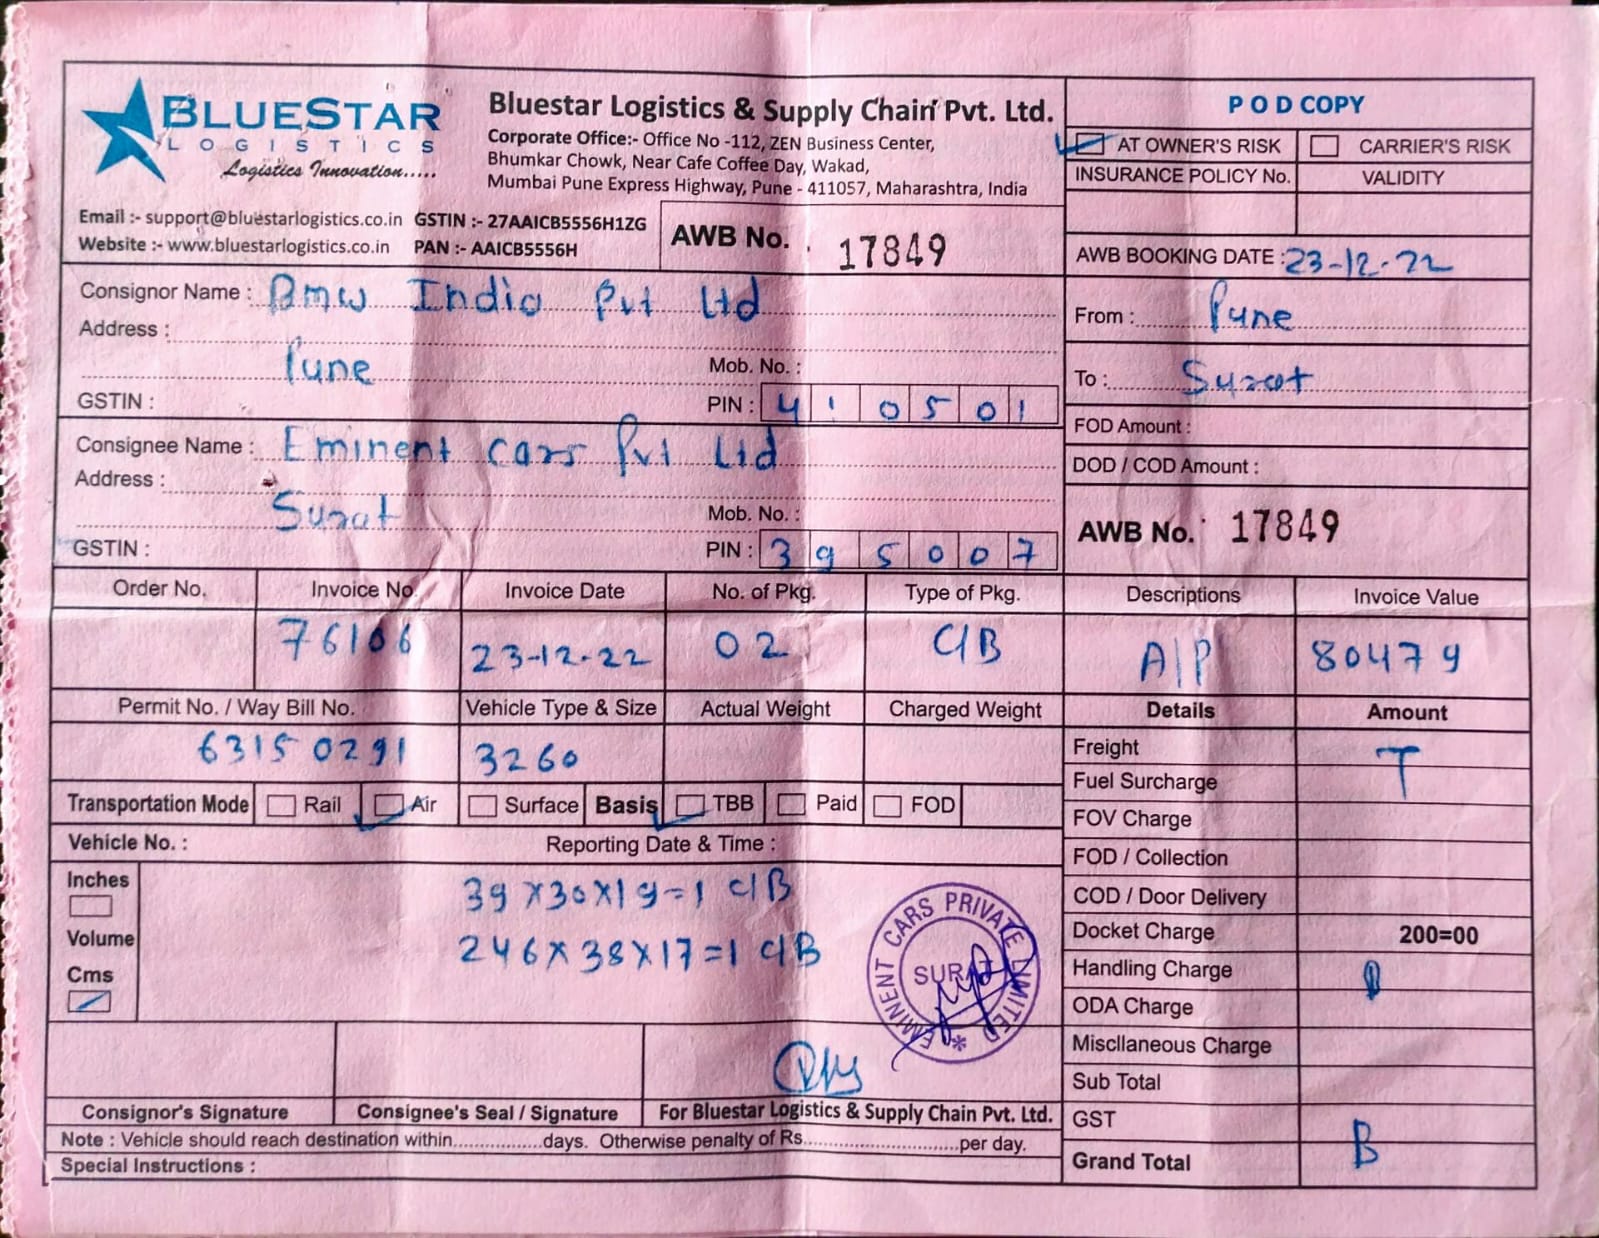 BLUESTAR
LOGISTICS
Logistics Innovation.....
Bluestar Logistics & Supply Chain Pvt. Ltd.
Corporate Office:- Office No -112, ZEN Business Center,
Bhumkar Chowk, Near Cafe Coffee Day, Wakad,
Mumbai Pune Express Highway, Pune - 411057, Maharashtra, India
Email :- support@bluestarlogistics.co.in GSTIN :- 27AAICB5556H1ZG
Website :- www.bluestarlogistics.co.in PAN :- AAICB5556H
AWB No. 17849
POD COPY
AT OWNER'S RISK CARRIER'S RISK
INSURANCE POLICY No. VALIDITY
AWB BOOKING DATE : 23-12-22
From : Pune
To : Surat
FOD Amount :
DOD / COD Amount :
AWB No. 17849
Consignor Name : Bmw India Pvt Ltd
Address :
Pune Mob. No. :
GSTIN : PIN : 410501
Consignee Name : Eminent cars Pvt Ltd
Address :
Surat Mob. No. :
GSTIN : PIN : 395007
Order No. Invoice No. Invoice Date No. of Pkg. Type of Pkg. Descriptions Invoice Value
76106 23-12-22 02 C/B A/P 80479
Permit No. / Way Bill No. Vehicle Type & Size Actual Weight Charged Weight Details Amount
63150291 3260
Freight
Fuel Surcharge T
Transportation Mode Rail Air Surface Basis TBB Paid FOD
FOV Charge
Vehicle No. : Reporting Date & Time :
FOD / Collection
Inches
39x30x19=1 C/B
COD / Door Delivery
Volume
246x38x17=1 C/B
Docket Charge 200=00
Cms
Handling Charge
ODA Charge
EMINENT CARS PRIVATE LIMITED
SURAT
*
Miscllaneous Charge
Sub Total
Consignor's Signature Consignee's Seal / Signature For Bluestar Logistics & Supply Chain Pvt. Ltd.
GST
Note : Vehicle should reach destination within.................days. Otherwise penalty of Rs.............................per day.
Grand Total B
Special Instructions :